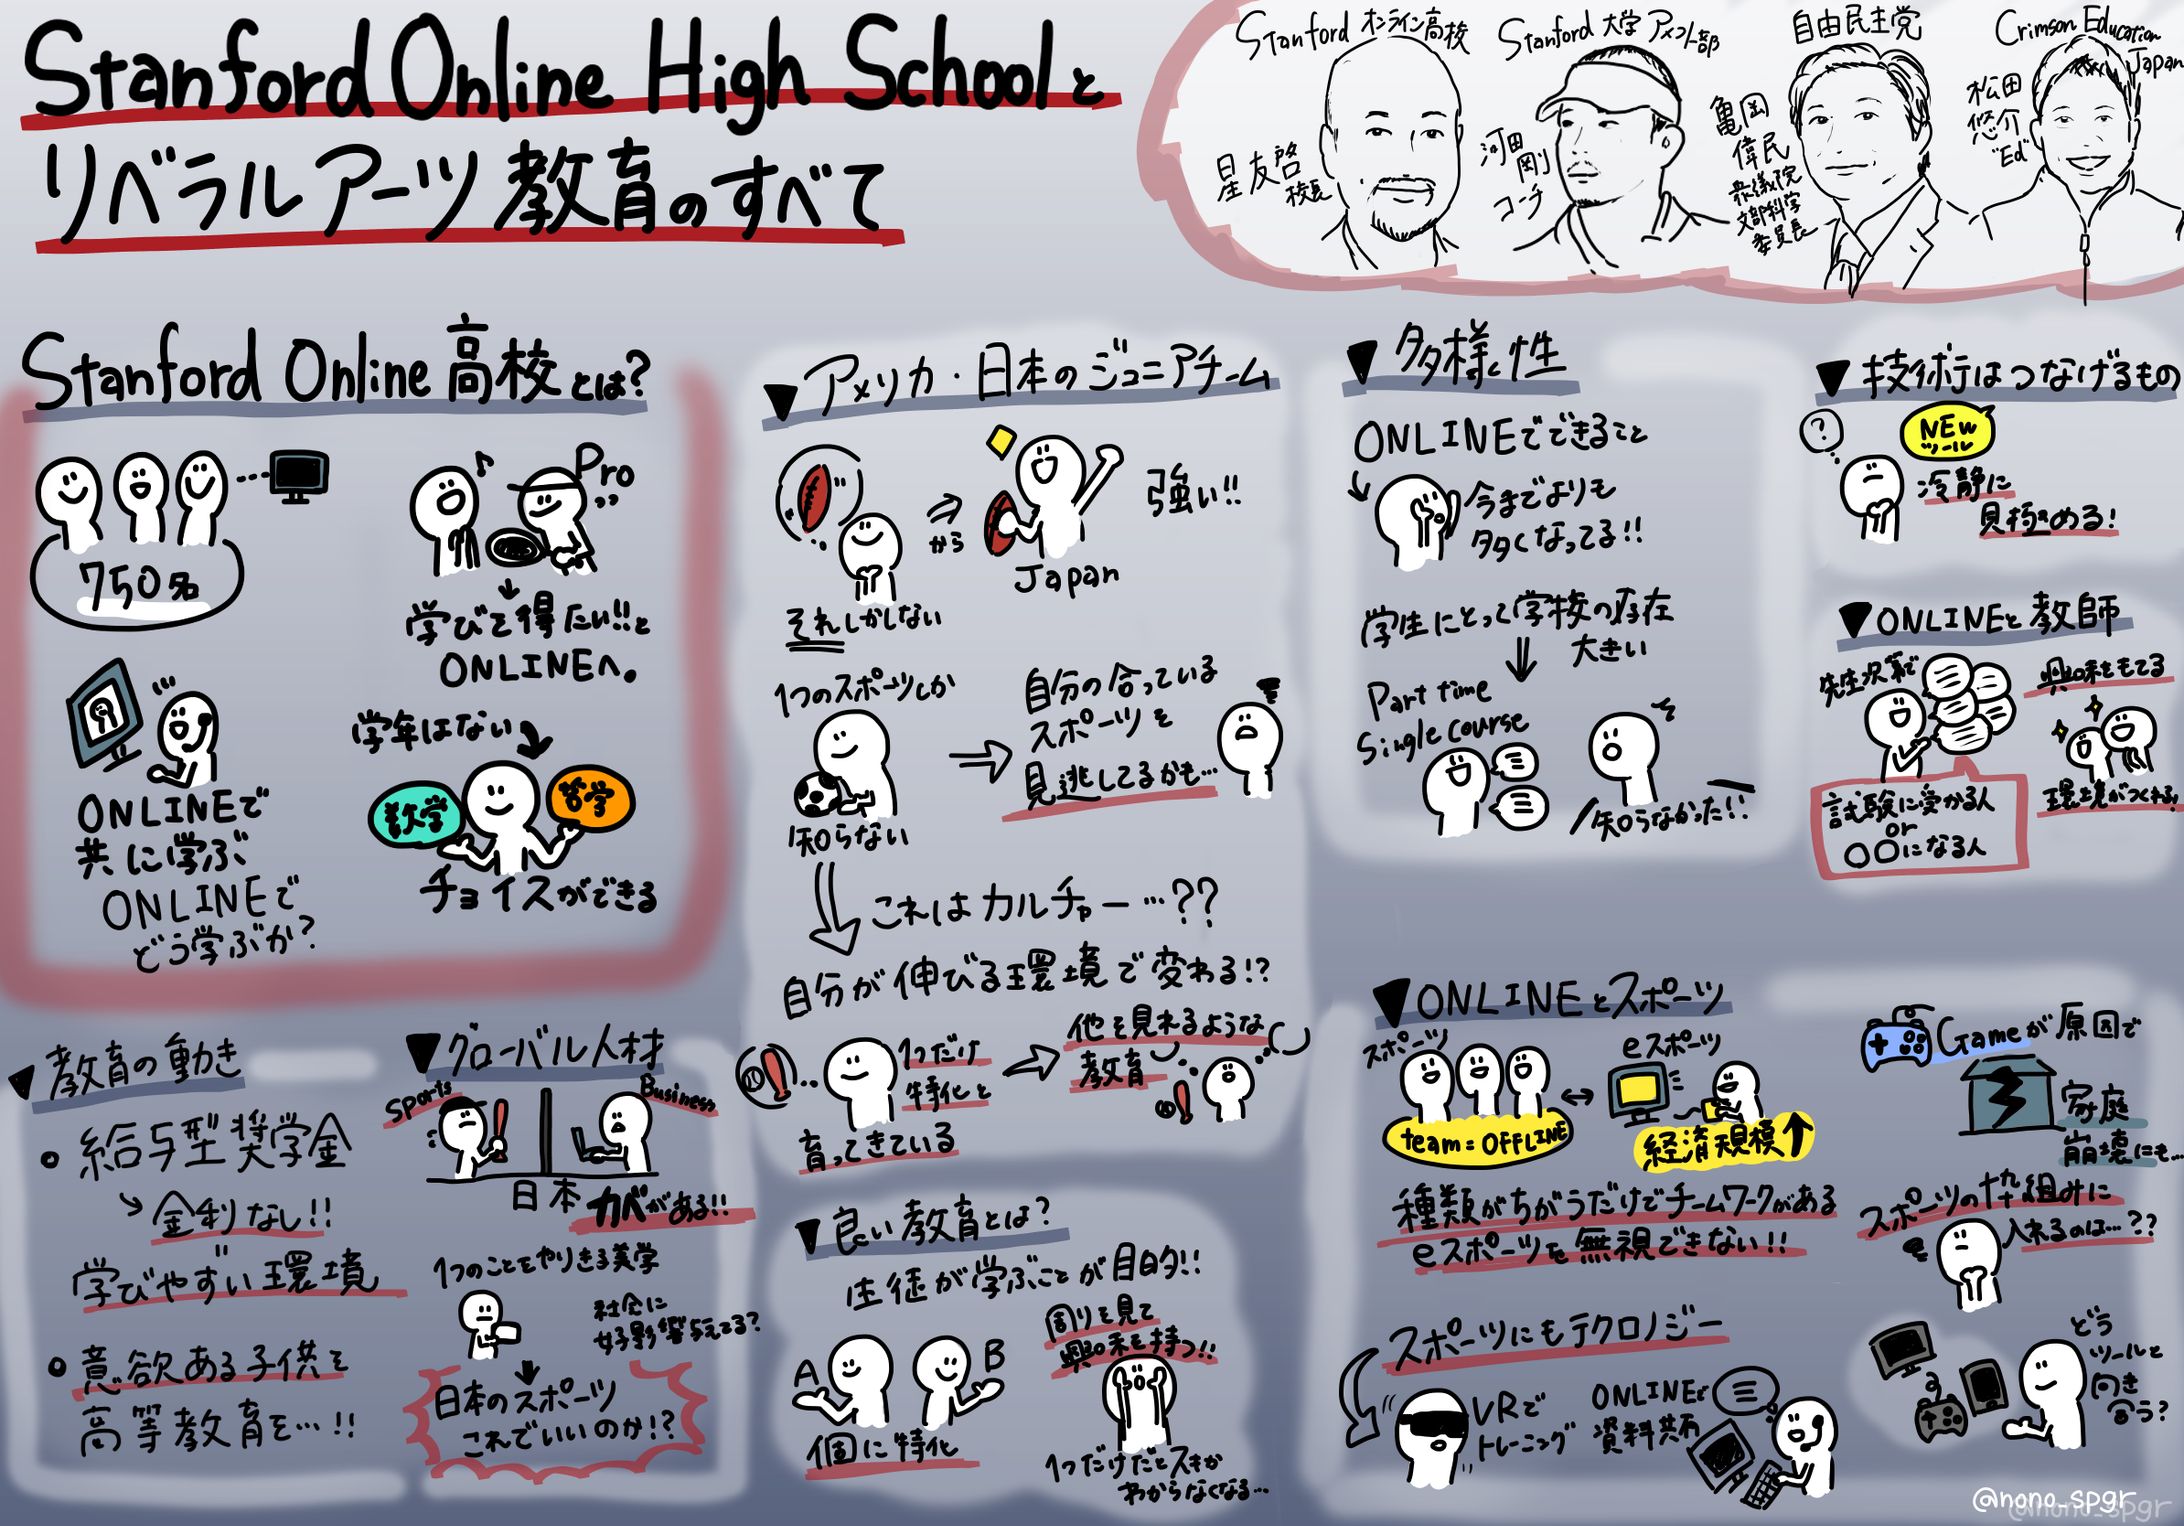 Stanford Online High Schoolと
リベラルアーツ教育のすべて
Stanford オンライン高校
星友啓
校長
Stanford 大学 アメフト部
河田
剛
コーチ
自由民主党
亀岡
偉民
衆議院
文部科学
委員長
Crimson Education
Japan
松田
悠介
"Ed"
Stanford Online 高校とは?
750名
Pro
学びを得たい!!と
ONLINEへ。
ONLINEで
共に学ぶ
ONLINEで
どう学ぶか?
学年はない
数学
哲学
チョイスができる
▼教育の動き
• 給与型奨学金
金利なし!!
学びやすい環境
• 意欲ある子供を
高等教育を…!!
▼グローバル人材
Sports
Business
日本 カベがある!!
1つのことをやりきる美学
社会に
好影響与えてる?
日本のスポーツ
これでいいのか!?
▼アメリカ・日本のジュニアチーム
それしかしない
から
Japan
強い!!
1つのスポーツしか
知らない
自分の合っている
スポーツを
見逃してるかも…
これはカルチャー…??
自分が伸びる環境で変わる!?
1つだけ
特化と
他を見れるような
教育
育ってきている
▼良い教育とは?
生徒が学ぶことが目的!!
A
B
個に特化
周りを見て
興味を持つ!!
1つだけだとスキが
わからなくなる…
▼多様性
ONLINEでできること
今までよりも
多くなってる!!
学生にとって学校の存在
大きい
Part time
Single course
知らなかった!!
▼技術はつなげるもの
?
NEW
ツール
冷静に
見極める!
▼ONLINEと教師
先生次第で
興味をもてる
環境がつくれる!
試験に受かる人
or
〇〇になる人
▼ONLINEとスポーツ
スポーツ
team = OFFLINE
eスポーツ
経済規模↑
種類がちがうだけでチームワークがある
eスポーツを無視できない!!
Gameが原因で
家庭
崩壊にも…
スポーツの枠組みに
入れるのは…??
スポーツにもテクロノジー
VRで
トレーニング
ONLINEで
資料共有
どう
ツールと
向き
合う?
@nono_spgr
@nono_spgr